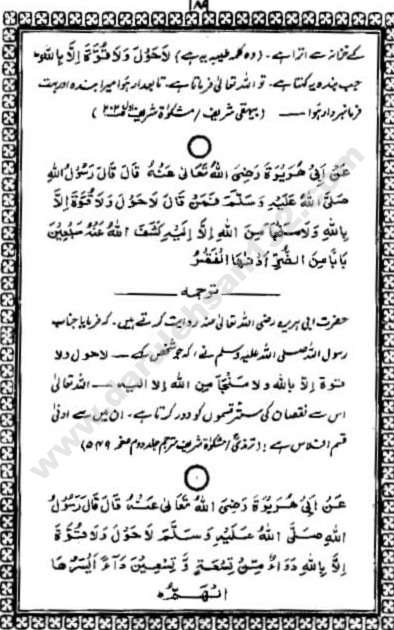 ۱۸۹
کے خزانہ سے اترا ہے۔ (وہ کلمہ طیبہ یہ ہے) لَاحَوْلَ وَلَا قُوَّةَ اِلَّا بِاللّٰهِ
جب بندہ یہ کہتا ہے۔ تو اللہ تعالیٰ فرماتا ہے۔ تابعدار ہوا میرا بندہ اور بہت
فرمانبردار ہوا — (بیہقی شریف / مشکوٰۃ شریف
عَنْ اَبِیْ هُرَيْرَةَ رَضِیَ اللّٰهُ تَعَالٰی عَنْهُ قَالَ قَالَ رَسُوْلُ اللّٰهِ
صَلَّی اللّٰهُ عَلَيْهِ وَسَلَّمَ فَمَنْ قَالَ لَاحَوْلَ وَلَا قُوَّةَ اِلَّا
بِاللّٰهِ وَلَا مَنْجَا مِنَ اللّٰهِ اِلَّا اِلَيْهِ كَشَفَ اللّٰهُ عَنْهُ سَبْعِيْنَ
بَابًا مِنَ الضُّرِّ اَدْنٰهَا الْفَقْرُ
ترجمہ
حضرت ابی ہریرہ رضی اللہ تعالیٰ عنہ روایت کرتے ہیں۔ کہ فرمایا جناب
رسول اللہ صلی اللہ علیہ وسلم نے، کہ جو شخص کہے — لاحول ولا
قوة الا باللہ ولا منجا من اللہ الا الیہ — اللہ تعالیٰ
اس سے نقصان کی ستر قسموں کو دور کرتا ہے۔ ان میں سے ادنیٰ
قسم افلاس ہے: (ترمذی / مشکوٰۃ شریف مترجم جلد دوم صفحہ ۵۴۹)
عَنْ اَبِیْ هُرَيْرَةَ رَضِیَ اللّٰهُ تَعَالٰی عَنْهُ قَالَ قَالَ رَسُوْلُ
اللّٰهِ صَلَّی اللّٰهُ عَلَيْهِ وَسَلَّمَ لَاحَوْلَ وَلَا قُوَّةَ
اِلَّا بِاللّٰهِ دَوَاءٌ مِّنْ تِسْعَةٍ وَّ تِسْعِيْنَ دَآءً اَيْسَرُهَا
الْهَمُّ